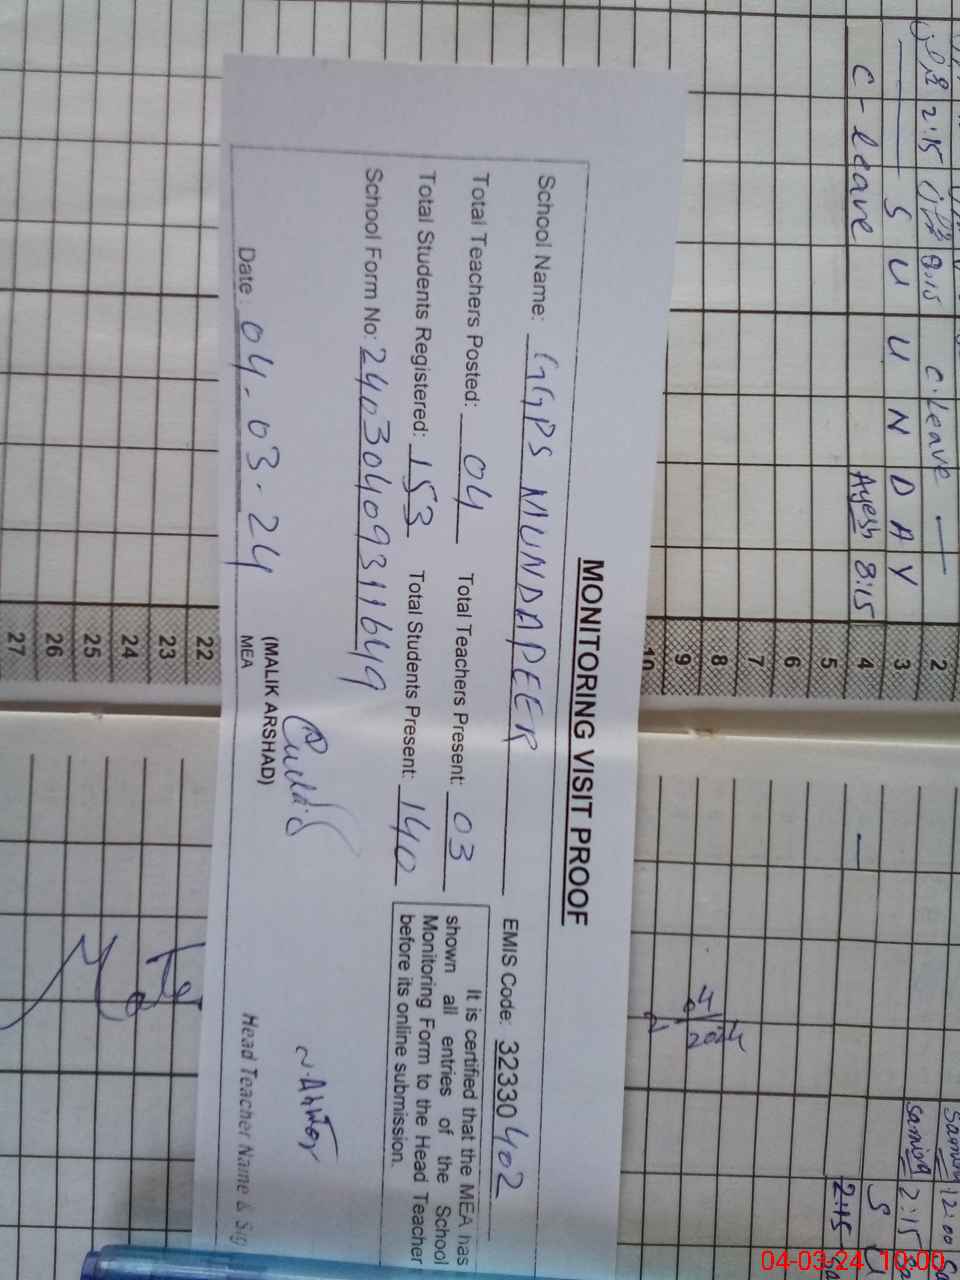 MONITORING VISIT PROOF
School Name: GGPS MUNDAPEER EMIS Code: 32330402
Total Teachers Posted: 04 Total Teachers Present: 03
Total Students Registered: 153 Total Students Present: 140
School Form No: 24030409311649
It is certified that the MEA has
shown all entries of the School
Monitoring Form to the Head Teacher
before its online submission.
Date: 04-03-24
(MALIK ARSHAD)
MEA
Head Teacher Name & Sig
2:15 9:15 C.Leave
S U U N D A Y
C-leave Ayesh 8:15
2
3
4
5
6
7
8
9
10
22
23
24
25
26
27
Samina 12:00
Samina 2:15
S U
2:15
04-03-24 10:00